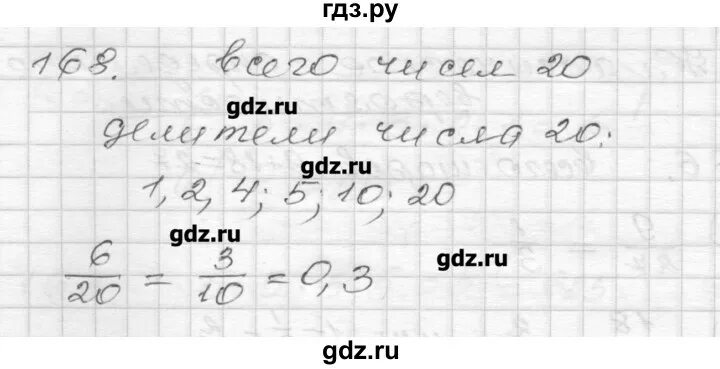 гдз.ру
168. всего чисел 20
gdz.ru
делители числа 20:
gdz.ru
1, 2, 4; 5; 10; 20
gdz.ru
6/20 = 3/10 = 0,3
gdz.ru
gdz.ru